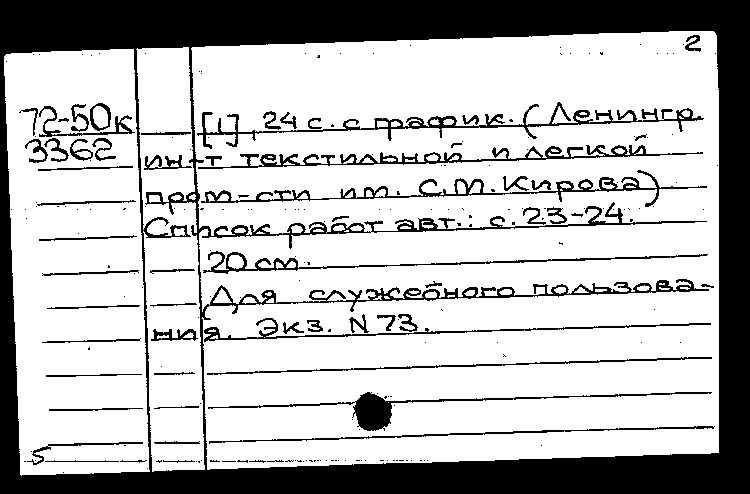 2
72-50к [1], 24 с. с график. (Ленингр.
3362 ин-т текстильной и легкой
пром-сти им. С.М. Кирова)
Список работ авт.: с. 23-24.
20 см.
Для служебного пользова-
ния. Экз. N 73.
5